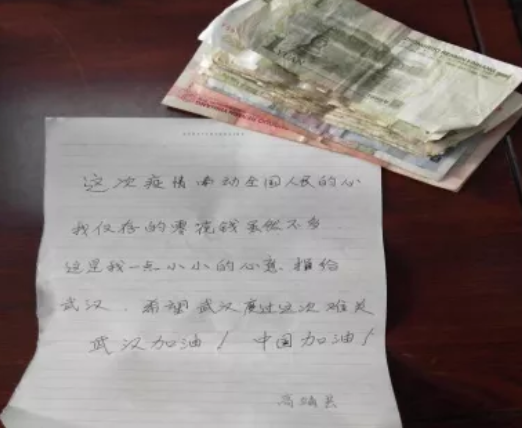 这次疫情牵动全国人民的心
我仅存的零花钱虽然不多
这是我一点小小的心意.捐给
武汉.希望武汉度过这次难关
武汉加油！中国加油！